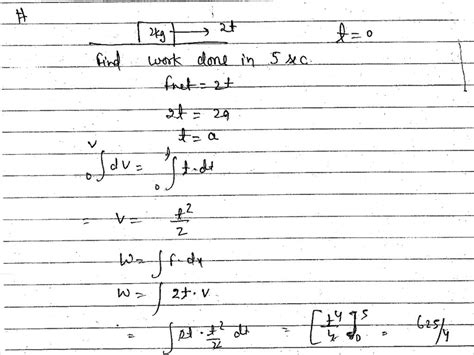 #
2kg → 2t t = 0
find work done in 5 sec.
fnet = 2t
2t = 2a
t = a
₀∫ᵛ dv = ₀∫ᵗ t·dt
= v = t²/2
W = ∫ f·dx
W = ∫ 2t·v
= ∫ 2t·t²/2 dt = [t⁴/4]₀⁵ = 625/4